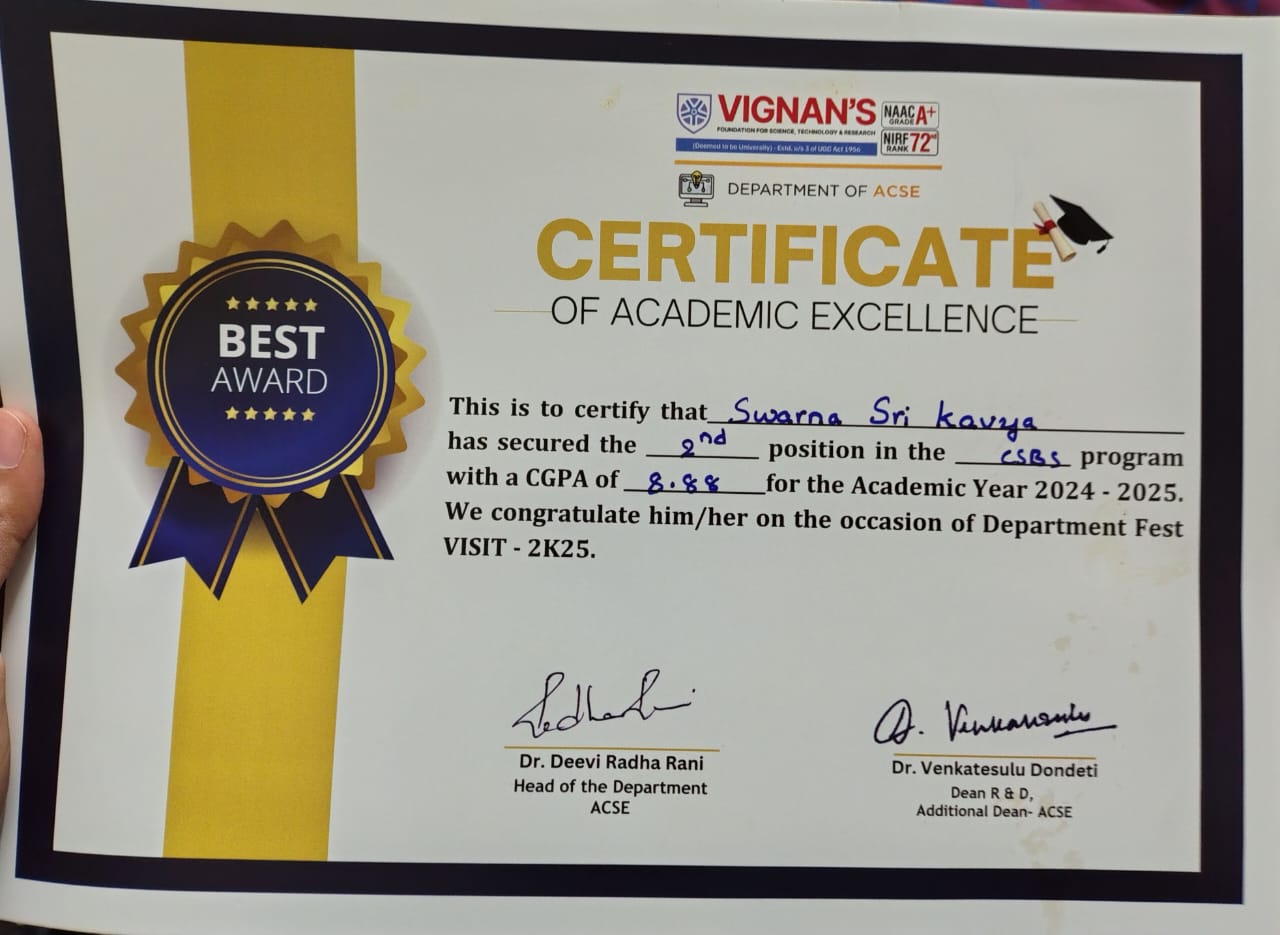 VIGNAN'S
FOUNDATION FOR SCIENCE, TECHNOLOGY & RESEARCH
(Deemed to be University) - Estd. u/s 3 of UGC Act 1956
NAAC GRADE A+
NIRF RANK 72nd
DEPARTMENT OF ACSE
CERTIFICATE
OF ACADEMIC EXCELLENCE
BEST
AWARD
This is to certify that Swarna Sri Kavya
has secured the 2nd position in the CSBS program
with a CGPA of 8.88 for the Academic Year 2024 - 2025.
We congratulate him/her on the occasion of Department Fest
VISIT - 2K25.
D. Venkatesulu
Dr. Deevi Radha Rani
Head of the Department
ACSE
Dr. Venkatesulu Dondeti
Dean R & D,
Additional Dean- ACSE